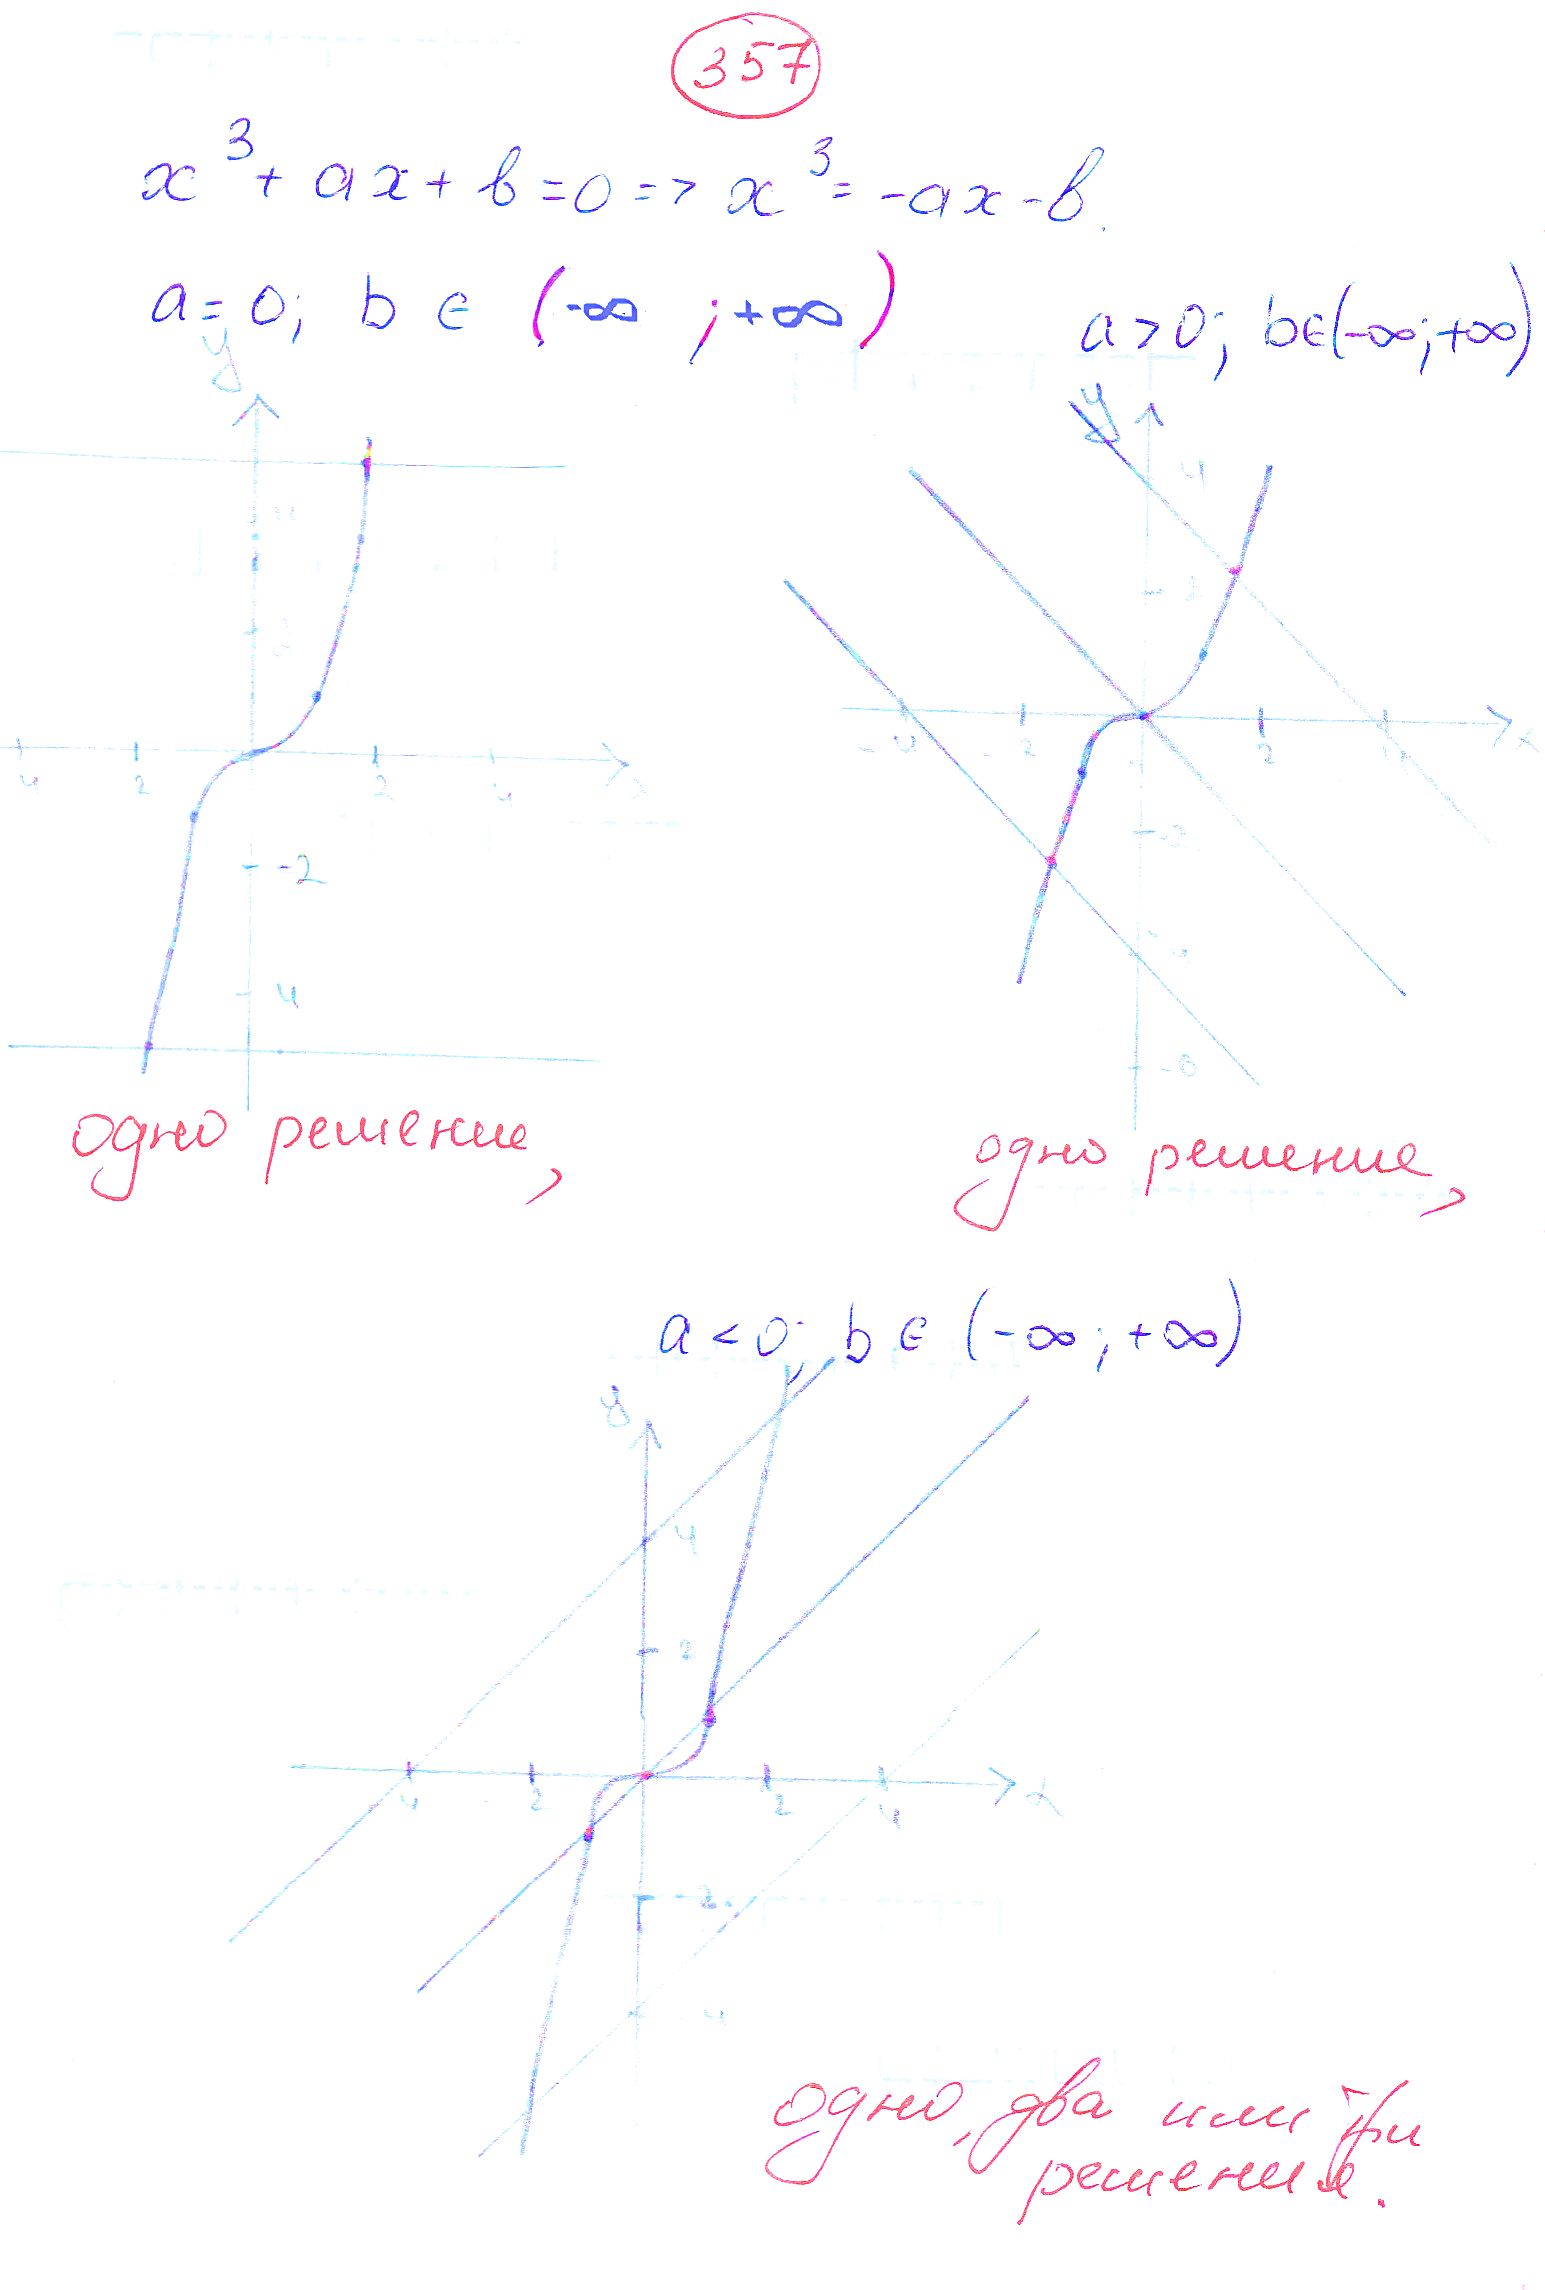 357
x³ + ax + b = 0 => x³ = -ax - b.
a = 0; b ∈ (-∞ ; +∞)
a > 0; b ∈ (-∞; +∞)
y
4 2 2 4
-2
4
одно решение,
y
4
2
-4 -2 2 4 x
-2
одно решение,
a < 0; b ∈ (-∞; +∞)
y
4
2
4 2 2 4 x
-2
-4
одно, два или три
решения.